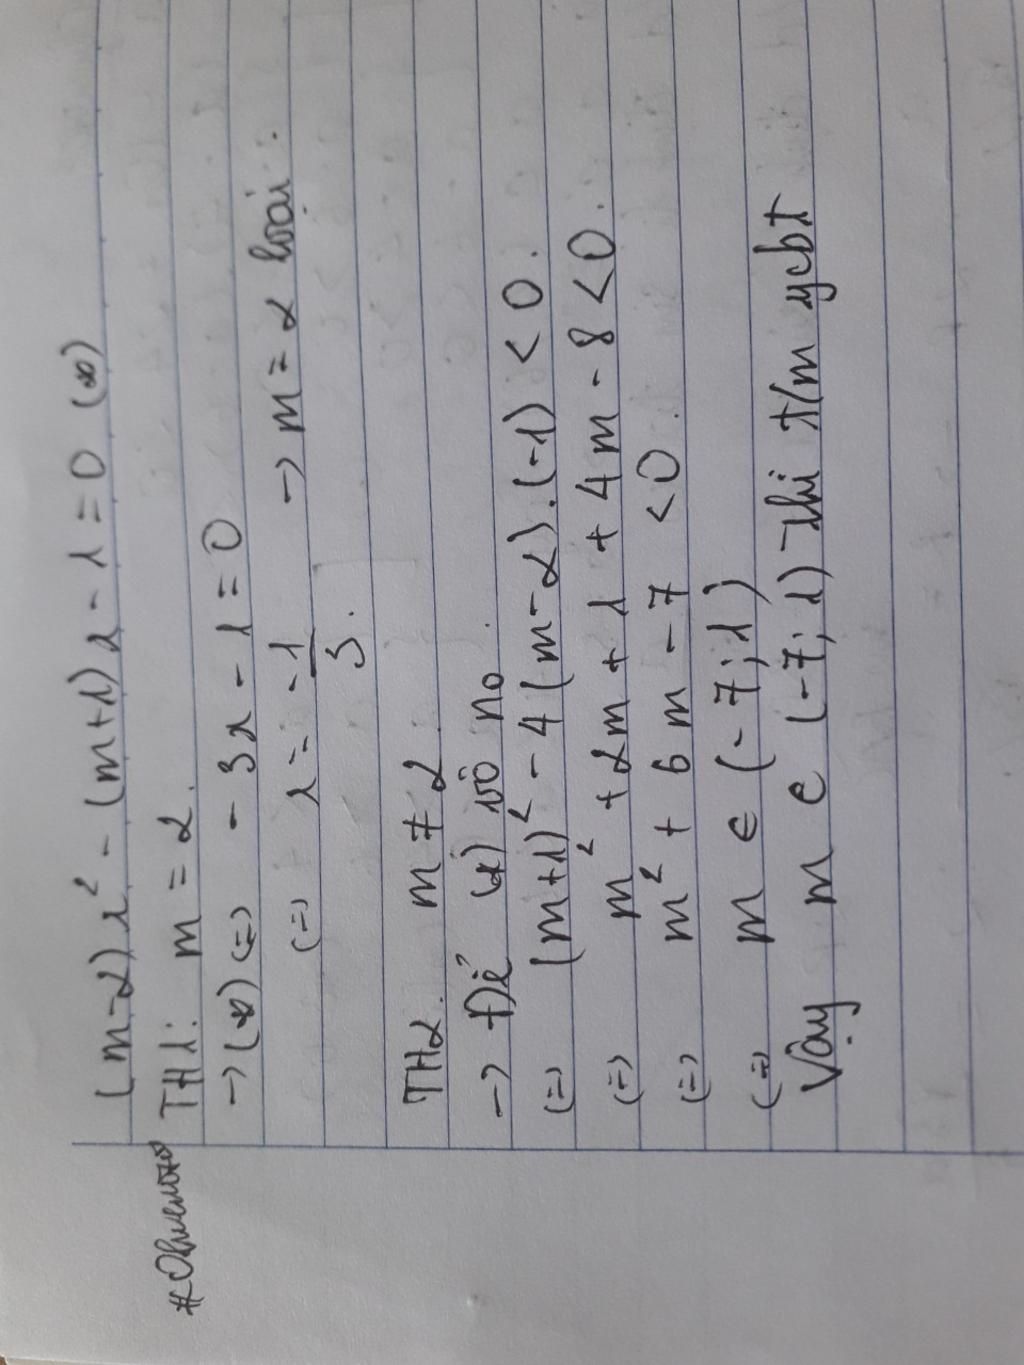 (m-2)x² - (m+1)x - 1 = 0 (*)
TH1: m = 2.
→ (*) (=) - 3x - 1 = 0
(=) x = -1/3. → m = 2 loại.
TH2. m ≠ 2
→ Để (*) vô no.
(=) (m+1)² - 4(m-2).(-1) < 0.
(=) m² + 2m + 1 + 4m - 8 < 0.
(=) m² + 6m - 7 < 0.
(=) m ∈ (-7; 1)
Vậy m ∈ (-7; 1) thì t/m ycbt